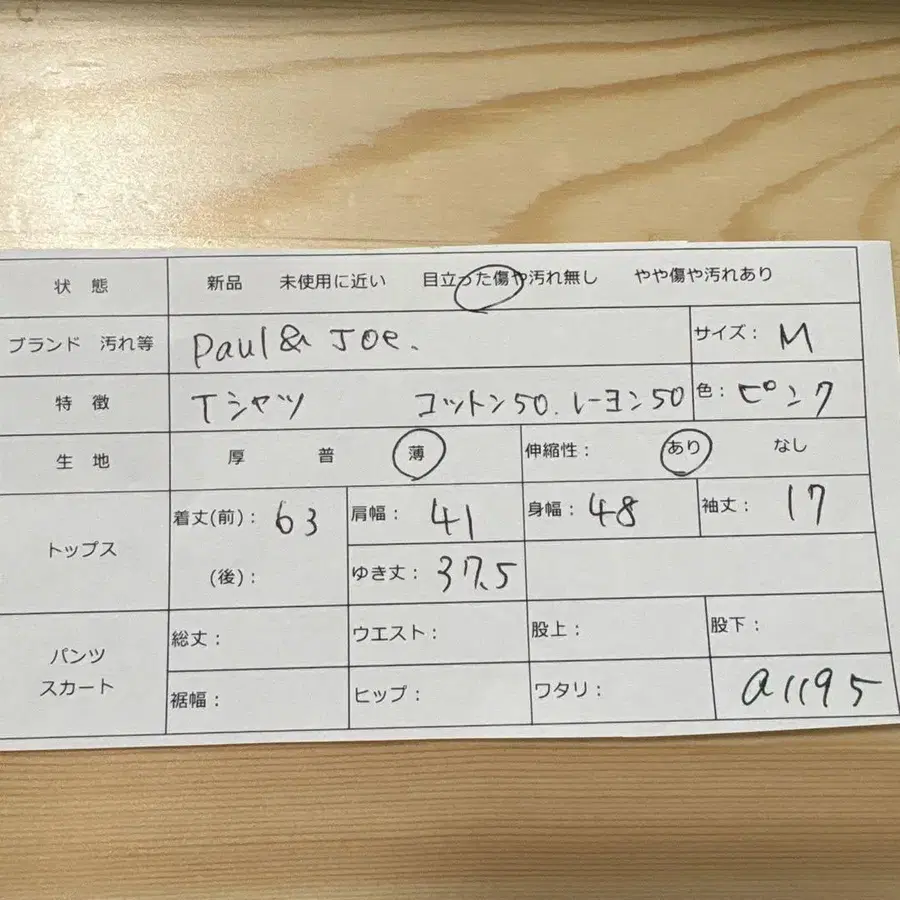 状 態 新品 未使用に近い 目立った傷や汚れ無し やや傷や汚れあり
ブランド 汚れ等 Paul & Joe. サイズ： M
特 徴 Tシャツ コットン50. レーヨン50 色： ピンク
生 地 厚 普 薄 伸縮性： あり なし
トップス 着丈(前)： 63 肩幅： 41 身幅： 48 袖丈： 17
(後)： ゆき丈： 37.5
パンツ スカート 総丈： ウエスト： 股上： 股下：
裾幅： ヒップ： ワタリ： a1195